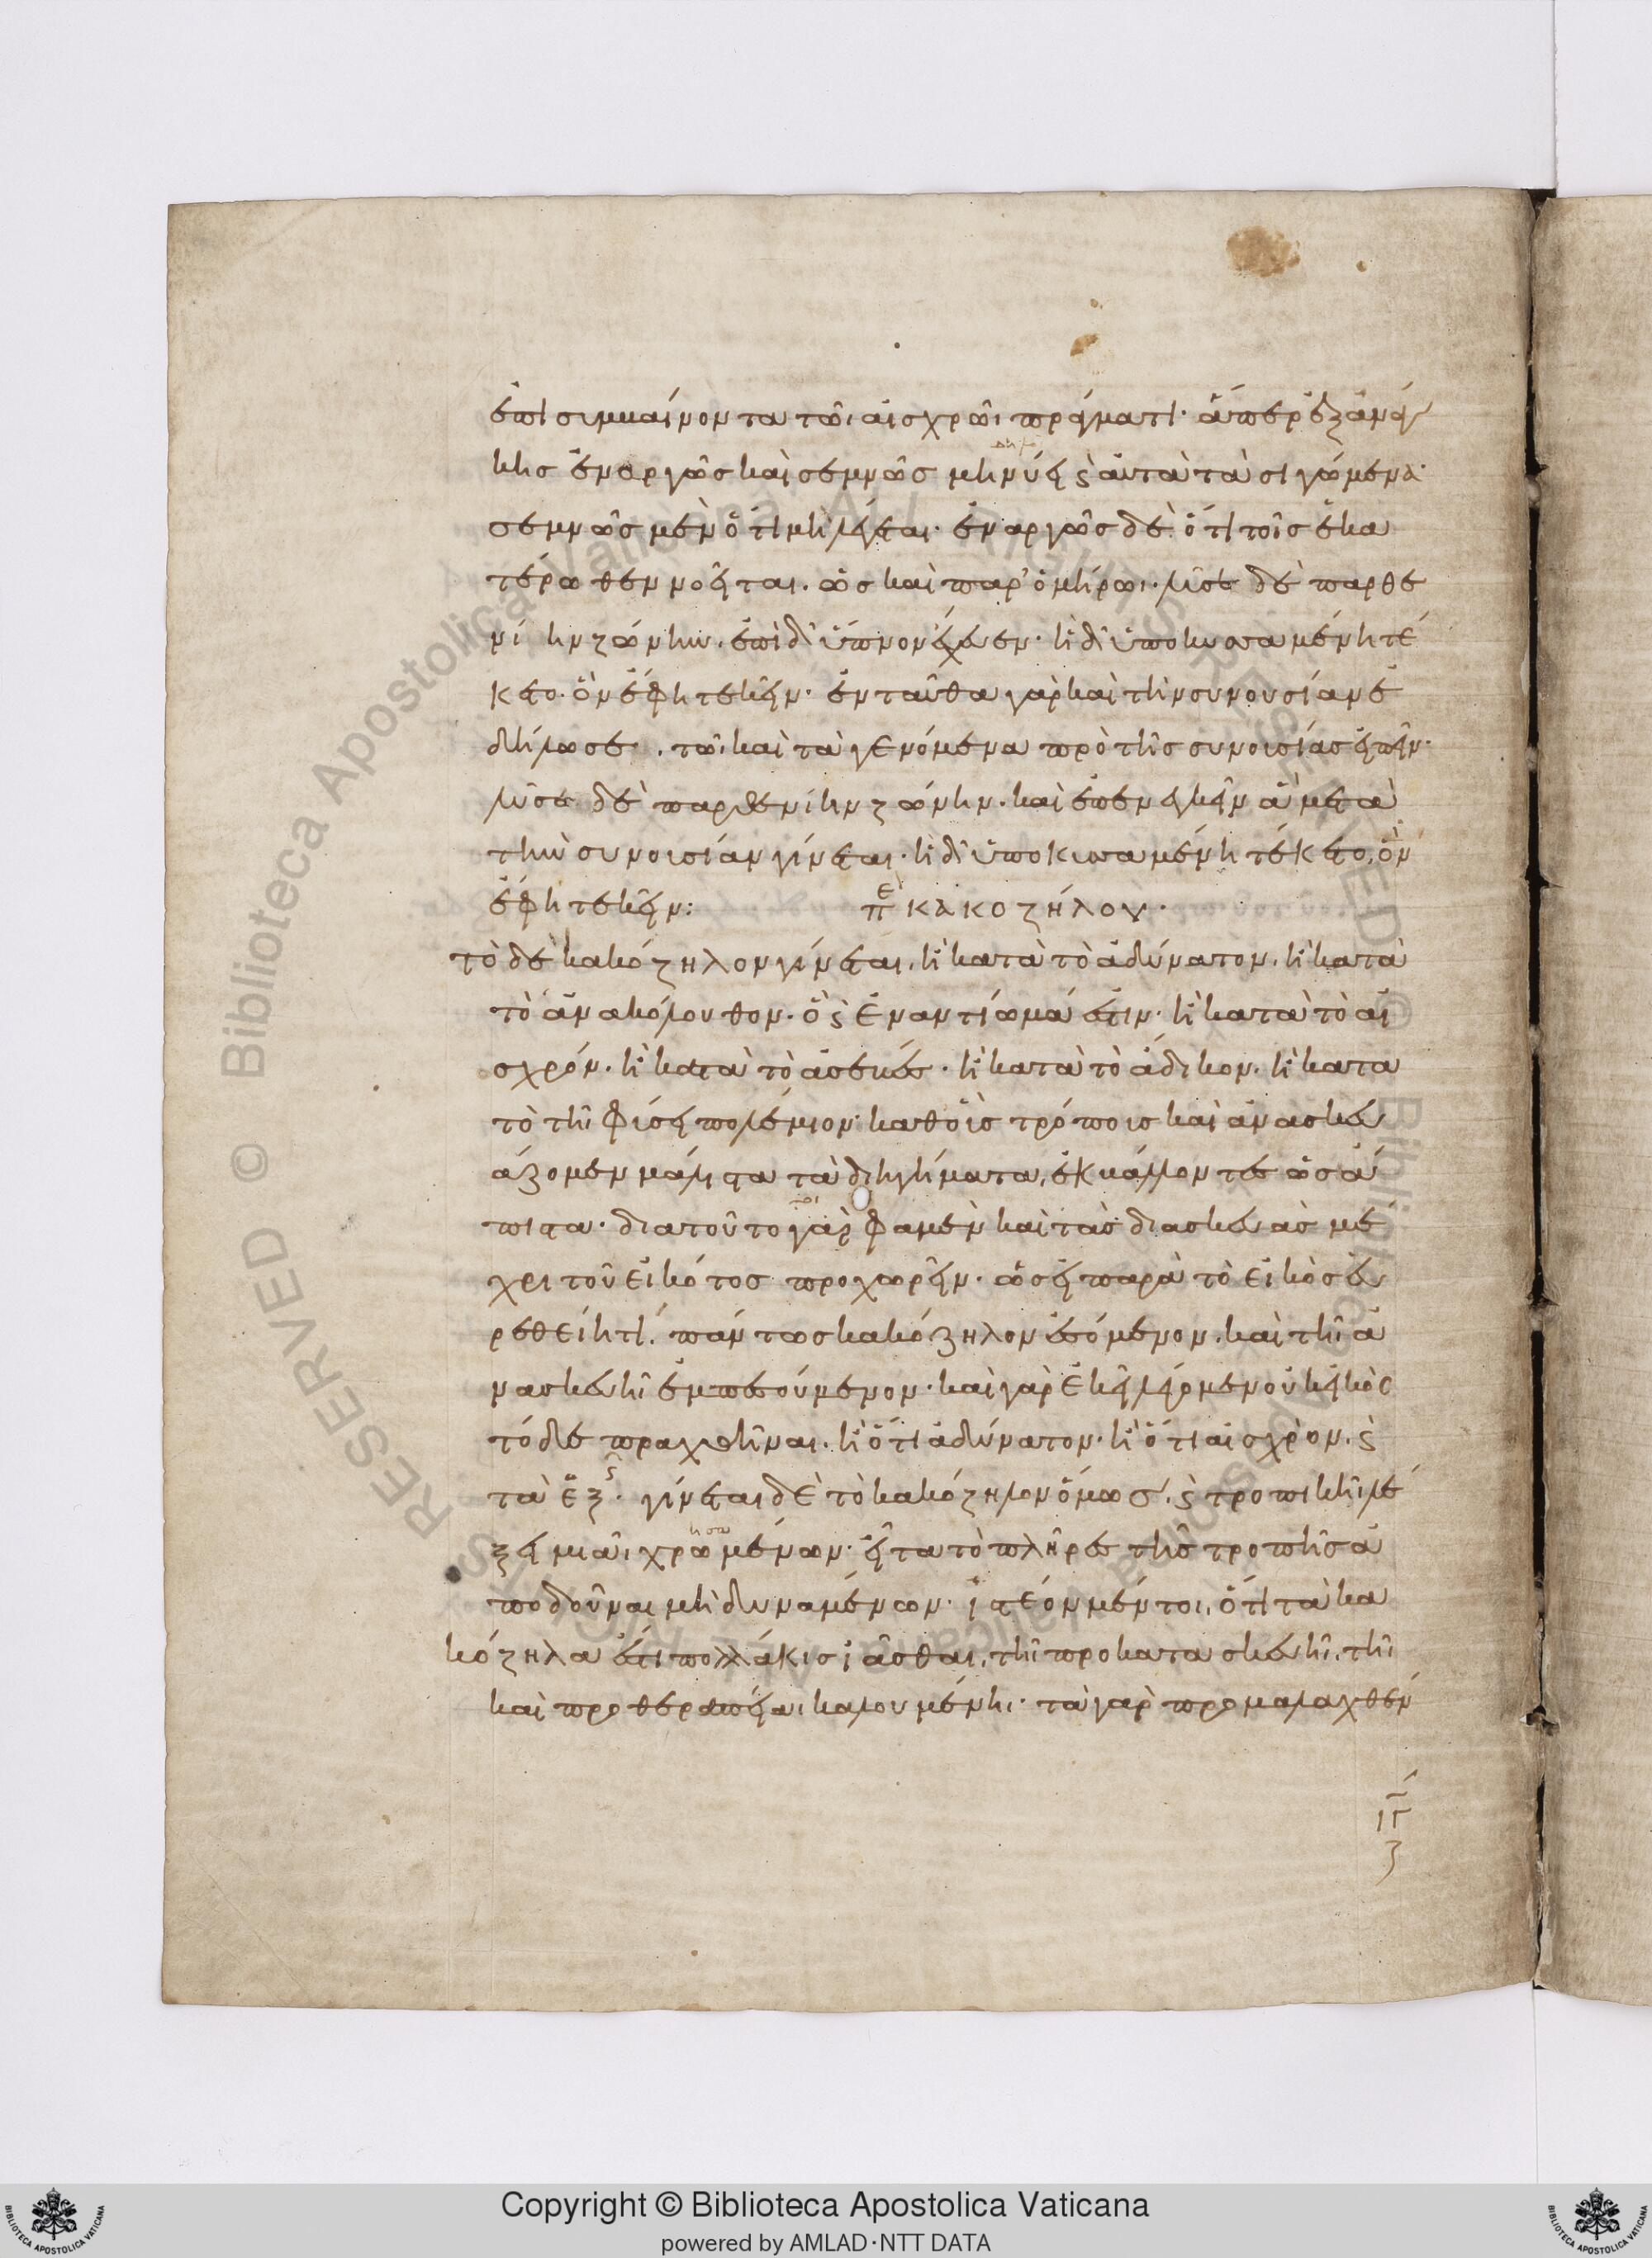 ἐπισυμβαίνοντα τῶι αἰσχρῶι πράγματι· ἅπερ ἐξ ἀνάγ
κης ἐναργῶς καὶ σεμνῶς μηνύει ϛ̀ αὐτὰ τὰ σιγώμενα·
σεμνῶς μὲν ὅτι μὴ λέγεται· ἐναργῶς δὲ ὅτι τοῖς ἑκα
τέρωθεν νοεῖται. ὡς καὶ παρ' ὁμήρωι· λῦσε δὲ παρθε
νίην ζώνην. ἐπὶ δ' ὕπνον ἔχευεν· ἡ δ' ὑποκυσαμένη τέ
κετο. ὃν ἔφη τεκεῖν· ἐνταῦθα γὰρ καὶ τὴν συνουσίαν ἐ
δήλωσε. τῶι καὶ τὰ γενόμενα πρὸ τῆς συνουσίας εἰπεῖν·
λῦσε δὲ παρθενίην ζώνην. καὶ ἐπενεγκεῖν ἃ μετὰ
τὴν συνουσίαν γίνεται· ἡ δ' ὑποκυσαμένη τέκετο, ὃν
ἔφη τεκεῖν: πε ΚΑΚΟΖΗΛΟΥ·
τὸ δὲ κακόζηλον γίνεται. ἢ κατὰ τὸ ἀδύνατον. ἢ κατὰ
τὸ ἀνακόλουθον. ὃ ϛ̀ ἐναντίωμά ἐστιν· ἢ κατὰ τὸ αἰ
σχρόν. ἢ κατὰ τὸ ἀσεβές. ἢ κατὰ τὸ ἄδικον. ἢ κατα
τὸ τῆι φύσει πολέμιον· καθ' οἷς τρόποις καὶ ἀνασκευ
άζομεν μάλιστα τὰ διηγήματα, ἐκβάλλοντες ὡς ἄ
πιστα· διατοῦτο γάρ φαμεν καὶ τὰς διασκευὰς μέ
χρι τοῦ εἰκότος προχωρεῖν. ὡς εἰ παρὰ τὸ εἰκὸς εὑ
ρεθείη τί. πάντως κακόζηλον ἐσόμενον. καὶ τῆι ἀ
νασκευῆι ἐμπεσούμενον· καὶ γὰρ ἐκεῖ λέγομεν οὐκ εἰκὸς
τόδε πραχθῆναι. ἢ ὅτι ἀδύνατον· ἢ ὅτι αἰσχρὸν. ϛ̀
τὰ ἑξῆς· γίνεται δὲ τὸ κακόζηλον ὅμως. ϛ̀ τροπικῆι λέ
ξει μιᾶι χρωμένων· εἶτα τὸ πλῆρες τῆς τροπῆς ἀ
ποδοῦναι μὴ δυναμένων· ἰστέον μέντοι, ὅτι τὰ κα
κόζηλα ἔστι πολλάκις ἰᾶσθαι, τῆι προκατασκευῆι. τῆι
καὶ προθεραπείαι καλουμένηι· τὰ γὰρ προμαλαχθέν
ιγ
Copyright © Biblioteca Apostolica Vaticana
powered by AMLAD·NTT DATA